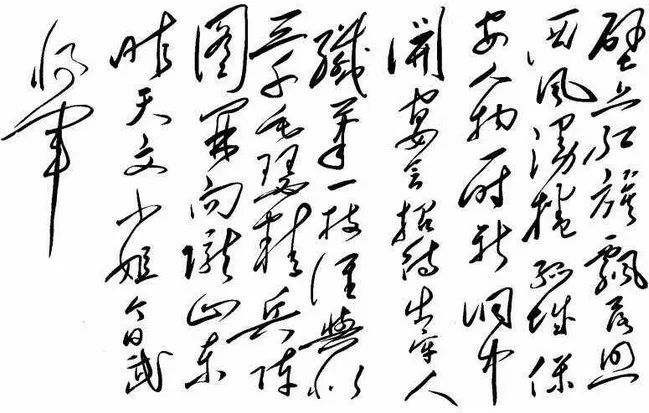 壁上红旗飄落照
西风漫捲孤城保
安人物一时新洞中
開宴会招待出牢人
纖筆一枝谁與似
三千毛瑟精兵陣
图開向隴山东
昨天文小姐今日武
将军